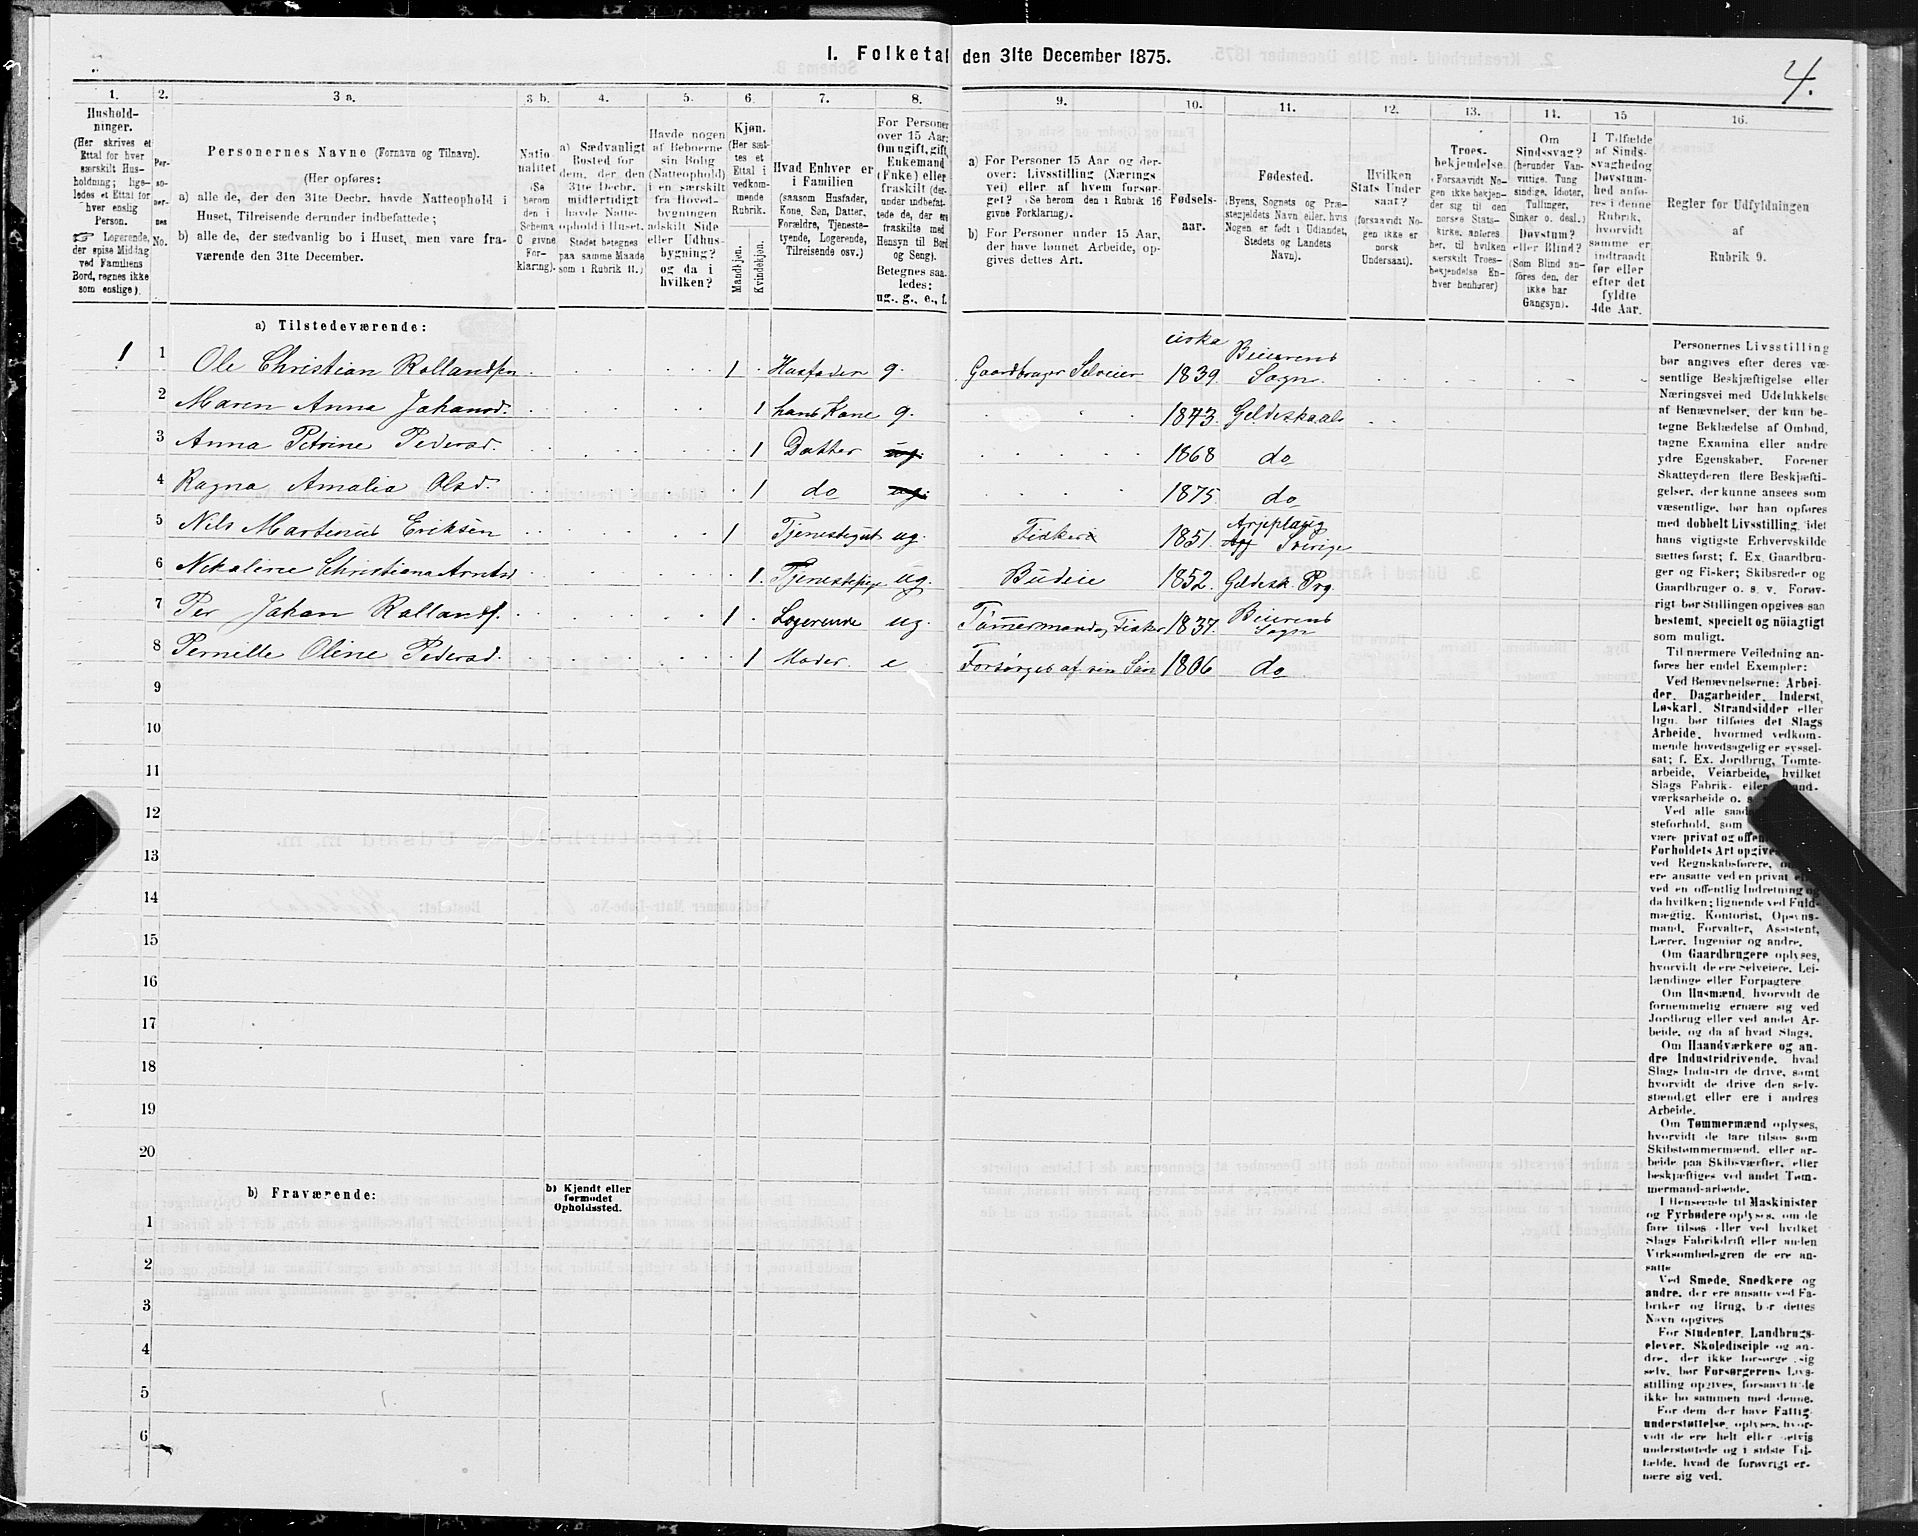 I. Folketal den 31te December 1875.
4.
1.
Hushold-
ninger.
(Her skrives et
Ettal for hver
særskilt Hus-
holdning; lige-
ledes et Ettal for
hver enslig
Person.
☞ Logerende,
der spise Middag
ved Familiens
Bord, regnes ikke
som enslige).
2.
Per-
so-
ner-
nes
No.
3 a.
Personernes Navne (Fornavn og Tilnavn).
(Her opføres:
a) alle de, der den 31te Decbr. havde Natteophold i
Huset, Tilreisende derunder indbefattede;
b) alle de, der sædvanlig bo i Huset, men vare fra-
værende den 31te December.
3 b.
Natio-
nalitet
(Se
herom
den i
Schema
C givne
For-
klaring).
4.
a) Sædvanligt
Bosted for
dem, der den
31te Decbr.
midlertidigt
havde Natte-
ophold i Huset.
Stedet betegnes
paa samme Maade
som i Rubrik 11.)
5.
Havde nogen
af Beboerne
sin Bolig
(Natteophold)
i en særskilt
fra Hoved-
bygningen
adskilt Side
eller Udhus-
bygning?
og da i
hvilken?
6.
Kjøn.
(Her sæt-
tes et
Ettal i
vedkom-
mende
Rubrik.
Mandkjøn.
Kvindekjøn.
7.
Hvad Enhver er
i Familien
(saasom Husfader,
Kone, Søn, Datter,
Forældre, Tjeneste-
tyende, Logerende,
Tilreisende osv.)
8.
For Personer
over 15 Aar:
Om ugift, gift,
Enkemand
(Enke) eller
fraskilt (der-
under indbefat-
tede de, der ere
fraskilte med
Hensyn til Bord
og Seng).
Betegnes saa-
ledes:
ug., g., e., f.
9.
a) For Personer 15 Aar og der-
over: Livsstilling (Nærings
vei) eller af hvem forsør-
get? (Se herom den i Rubrik 16
givne Forklaring).
b) For Personer under 15 Aar,
der have lønnet Arbeide, op-
gives dettes Art.
10.
Fødsels-
aar.
11.
Fødested.
(Byens, Sognets og Præ-
stegjeldets Navn eller, hvis
Nogen er født i Udlandet,
Stedets og Landets
Navn).
12.
Hvilken
Stats Under
saat?
(forsaavidt No-
gen ikke er
norsk
Undersaat).
13.
Troes-
bekjendelse.
(Forsaavidt No-
gen ikke bekjen-
der sig til den
norske Stats-
kirke, anføres
her, til hvilken
særskilt Troes-
bekjendelse En-
hver henhører)
14.
Om
Sindssvag?
(herunder Van-
vittige, Tung
sindige, Idioter,
Tullinger,
Sinker o. desl.)
Døvstum?
eller Blind?
(Som Blind an-
føres den, der
ikke har
Gangsyn).
15
I Tilfælde
af Sinds-
svaghed og
Døvstum-
hed anfø-
res i denne
Rubrik,
hvorvidt
samme er
indtraadt
før eller
efter det
fyldte
4de Aar.
16.
Regler før Udfyldningen
af
Rubrik 9.
a) Tilstedeværende:
1 1 Ole Christian Rollandsen 1 Husfader g. Gaardbruger Selveier cirka 1839. Beierens Sogn
2 Maren Anna Johansd. 1 hans Kone g. 1843. Geldeskaals
3 Anna Petrine Pedersd. 1 Datter ug. 1868 do
4 Ragna Amalia Olsd. 1 do ug. 1875. do
5 Nils Martenus Eriksen 1 Tjenestegut ug. Fisker 1851. Arjeplaug Sverige
6 Nekoline Christiana Arntsd 1. Tjenestepige ug. Budeie 1852. Geldesk. Prg.
7 Per Johan Rollands. 1 Logerende ug. Tømmermand og Fisker 1837. Beierens Sogn
8 Pernille Oline Pedersd. 1 Moder e Forsørges af sin Søn 1806 do
9
10
11
12
13
14
15
16
17
18
19
20
b) Fraværende:
b) Kjendt eller
formodet
Opholdssted.
1
2
3
4
5
6
Personernes Livsstilling
bør angives efter deres væ-
sentlige Beskjæftigelse eller
Næringsvei med Udelukkelse
af Benævnelser, der kun be-
tegne Beklædelse af Ombud,
tagne Examina eller andre
ydre Egenskaber. Forener
Skatteyderen flere Beskjæfti-
gelser, der kunne ansees som
væsentlige, bør han opføres
med dobbelt Livsstilling, idet
hans vigtigste Erhvervskilde
sættes først; f. Ex. Gaardbru-
ger og Fisker; Skibsreder og
Gaardbruger o. s. v. Forøv-
rigt bør Stillingen opgives saa
bestemt, specielt og nöiagtigt
som muligt.
Til nærmere Veiledning an-
føres her endel Exempler:
Ved Benævnelserne: Arbei-
der, Dagarbeider, Inderst,
Løskarl, Strandsidder eller
lign. bør tilføies det Slags
Arbeide, hvormed vedkom-
mende hovedsagelig er syssel-
sat; f. Ex. Jordbrug, Tomte-
arbeide, Veiarbeide, hvilket
Slags Fabrik- eller
værksarbeide o. s.
Ved alle saad
steforhold, som
være privat og offen
Forholdets Art opgives
ved Regnskabsførere,
ere ansatte ved en privat
ved en offentlig Indretning og
da hvilken; lignende ved Fuld-
mægtig, Kontorist, Opsyns-
mand, Forvalter, Assistent,
Lærer, Ingeniør og andre.
Om Gaardbrugere oplyses,
hvorvidt de ere Selveiere, Lei-
lændinge eller Forpagtere.
Om Husmænd, hvorvidt de
fornemmelig ernære sig ved
Jordbrug eller ved andet Ar-
beide, og da af hvad Slags.
Om Haandværkere og an-
dre Industridrivende, hvad
Slags Industri de drive, samt
hvorvidt de drive den selv-
stændigt eller ere i andres
Arbeide.
Om Tømmermænd oplyses,
hvorvidt de fare tilsøs som
Skibstømmermænd, eller ar-
beide paa Skibsværfter, eller
beskjæftiges ved andet Tøm-
mermand-arbeide.
I Henseende til Maskinister
og Fyrbødere oplyses, om de
fare tilsøs eller ved hvilket
Slags Fabrikdrift eller anden
Virksomhedsgren de ere an-
satte
Ved Smede, Snedkere og
andre, der ere ansatte ved Fa-
briker og Brug, bør dettes
Navn opgives
For Studenter, Landbrugs-
elever, Skoledisciple og an-
dre, der ikke forsørge sig
selv, bør Forsørgerens Livs-
stilling opgives, forsaavidt de
ikke bo sammen med denne.
For dem der have Fattig-
understøttelse, oplyses, hvor-
vidt de ere helt eller delvis
understøttede og i sidste Til-
fælde, hvad de forøvrigt er-
nære sig ved.